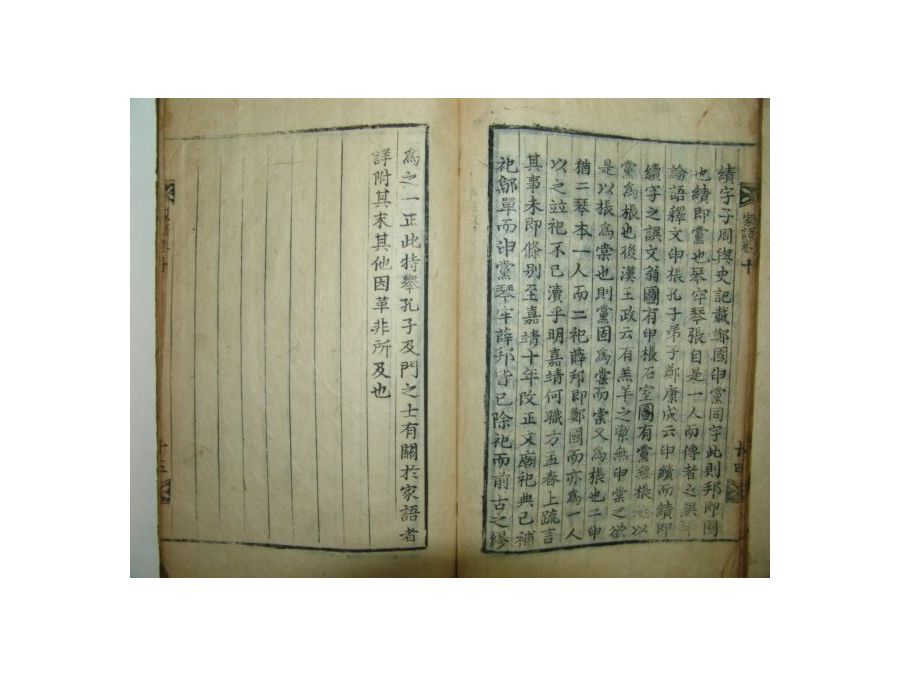 家語卷十
十四
續字子周與史記載鄭國申黨同字此則邦即國
也續即黨也琴牢琴張自是一人而傳者之異
論語釋文申棖孔子弟子鄭康成云申續而續即
續字之誤文翁圖有申棖石室圖有黨無棖以
黨爲棖也後漢王政云有羔羊之潔無申棠之欲
是以棖爲棠也則黨固爲棠而棠又爲棖也二申
猶二琴本一人而二祀薛邦即鄭國而亦爲一人
以之竝祀不已瀆乎明嘉靖何職方孟春上疏言
其事未即條别至嘉靖十年改正文廟祀典已補
祀鄡單而申黨琴牢薛邦皆已除祀而前古之繆
爲之一正此特舉孔子及門之士有關於家語者
詳附其末其他因革非所及也
十五